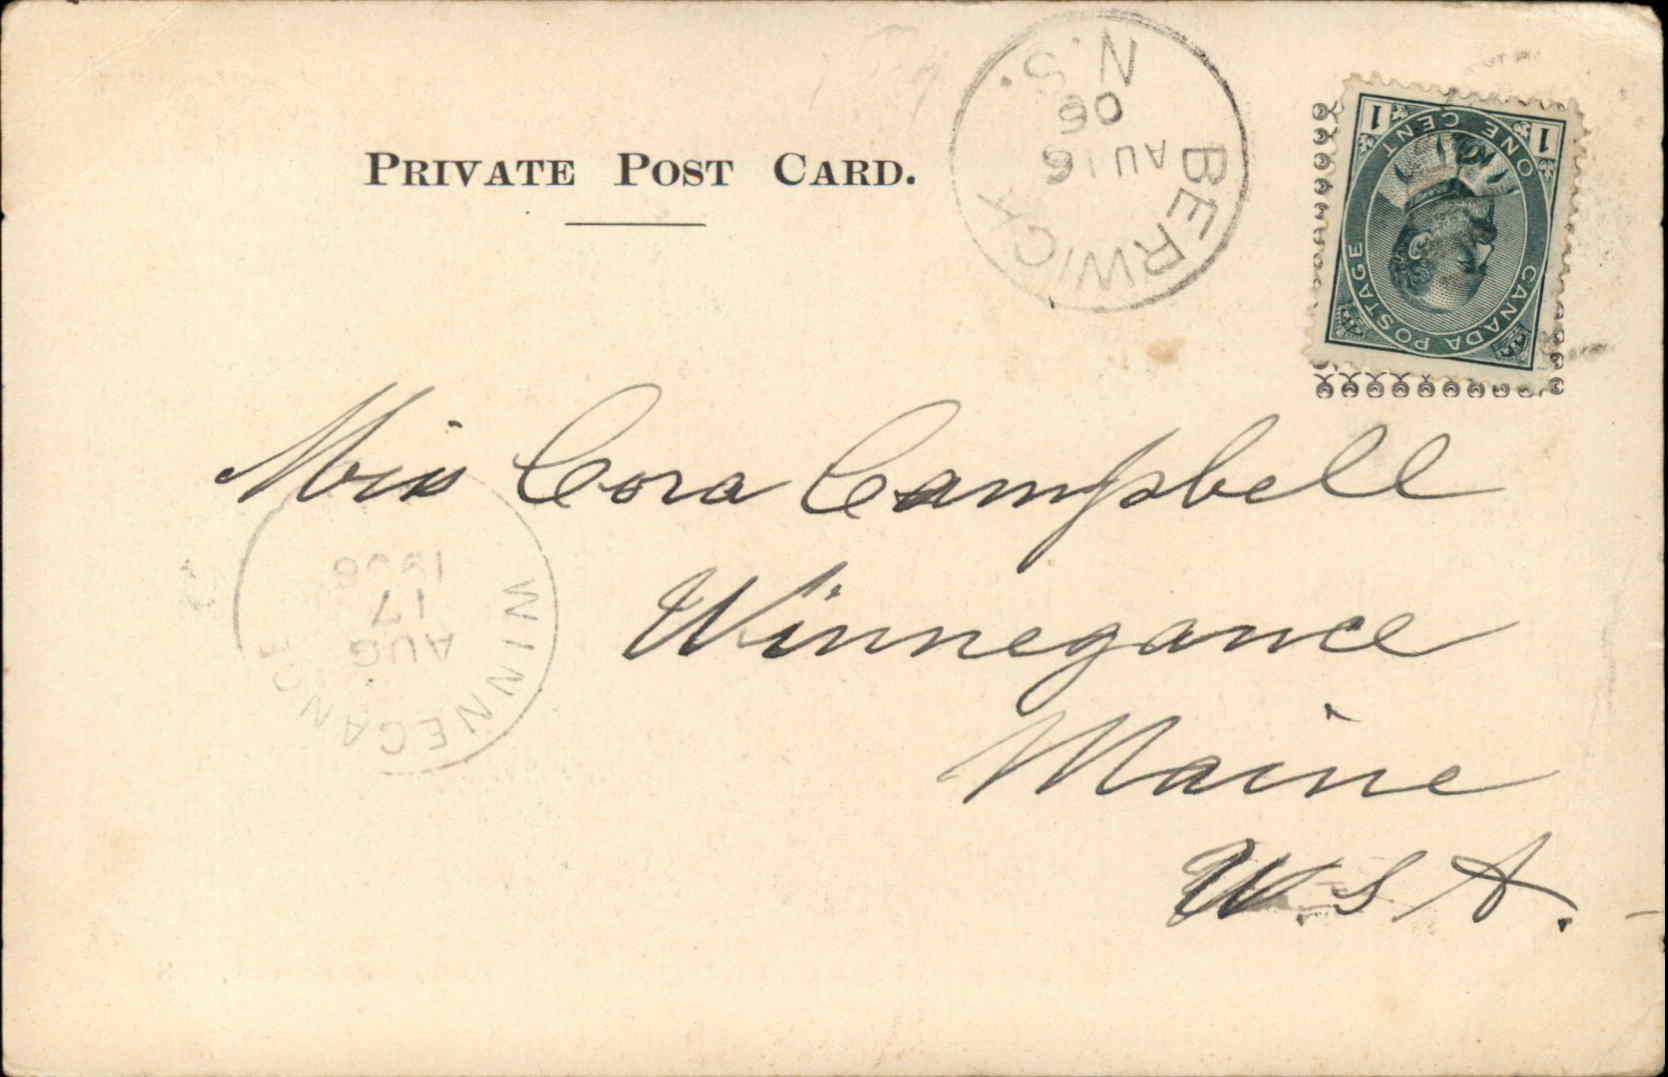 PRIVATE POST CARD.
BERWICK
AU 16
06
N.S.
1 1
CANADA POSTAGE
ONE CENT
Miss Cora Campbell
Winnegance
Maine
U.S.A.
WINNEGANCE
AUG
17
1906